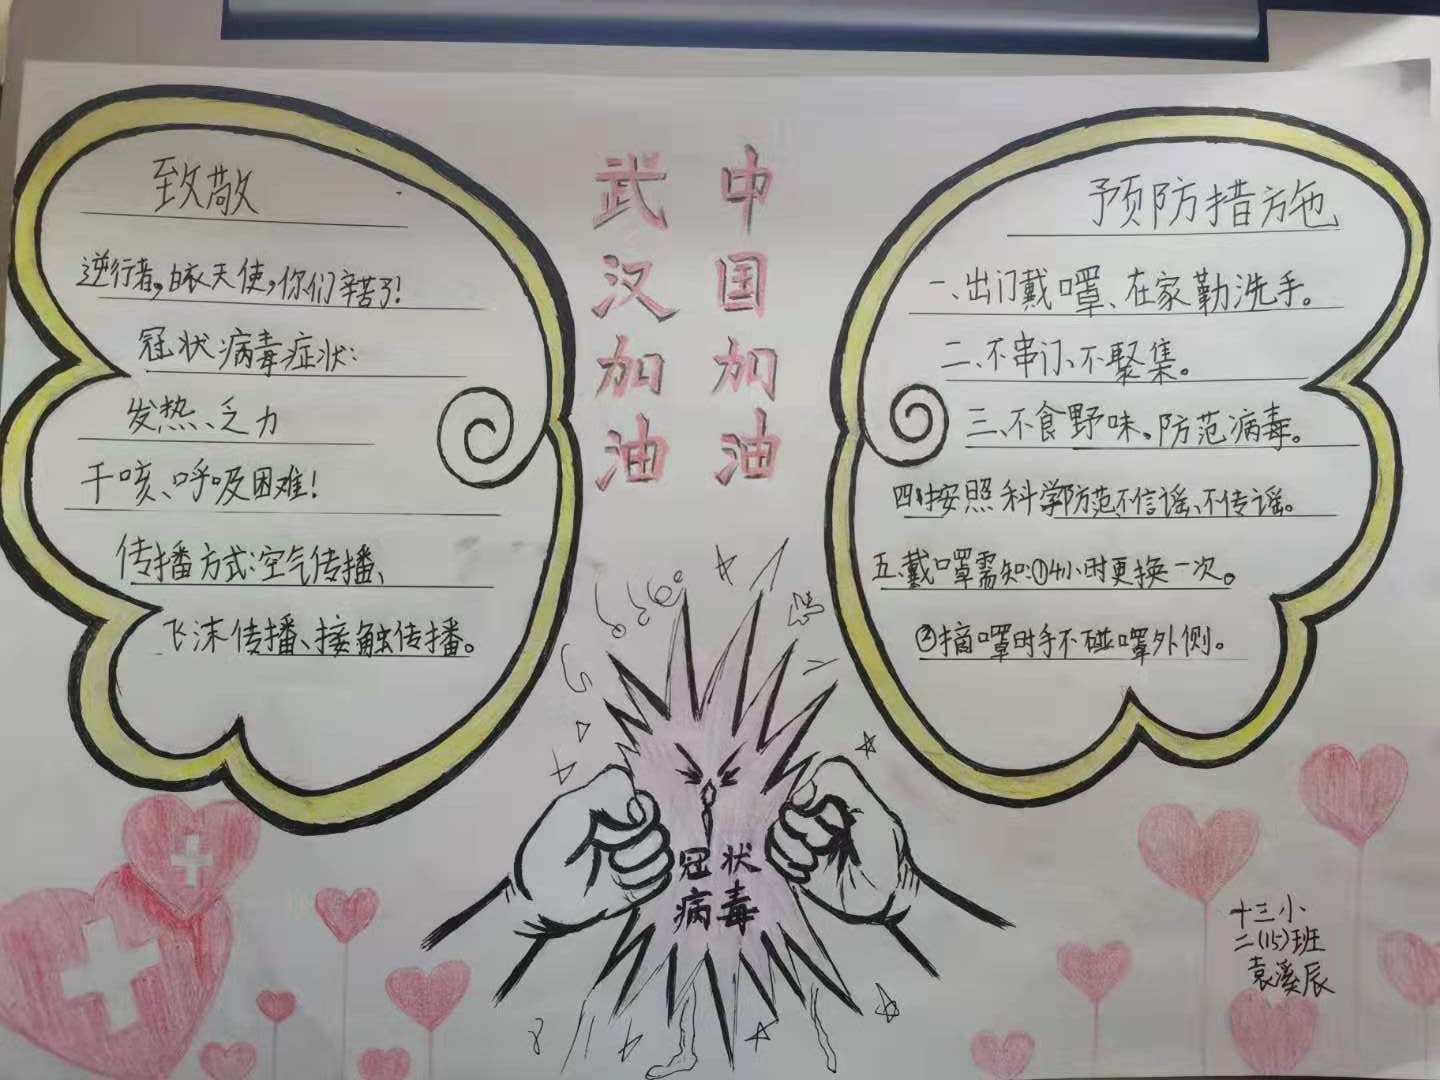 致敬
逆行者,白衣天使,你们辛苦了!
冠状病毒症状:
发热、乏力
干咳、呼吸困难!
传播方式:空气传播、
飞沫传播、接触传播。
武汉加油
中国加油
预防措施
一、出门戴口罩、在家勤洗手。
二、不串门、不聚集。
三、不食野味。防范病毒。
四、按照科学防范、不信谣、不传谣。
五、戴口罩需知:①4小时更换一次。
②摘罩时手不碰罩外侧。
冠状
病毒
十三小
二(15)班
袁溪辰